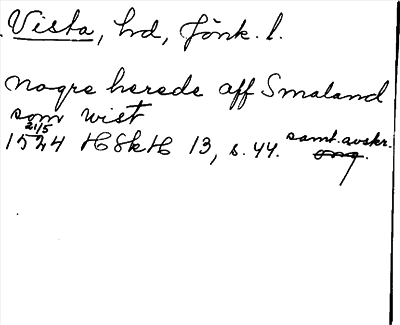 Vista, hd, Jönk. l.
nogre herede aff Smaland
som wist
21/5
1524 HSkH 13, s. 44. samt. avskr.
orig.